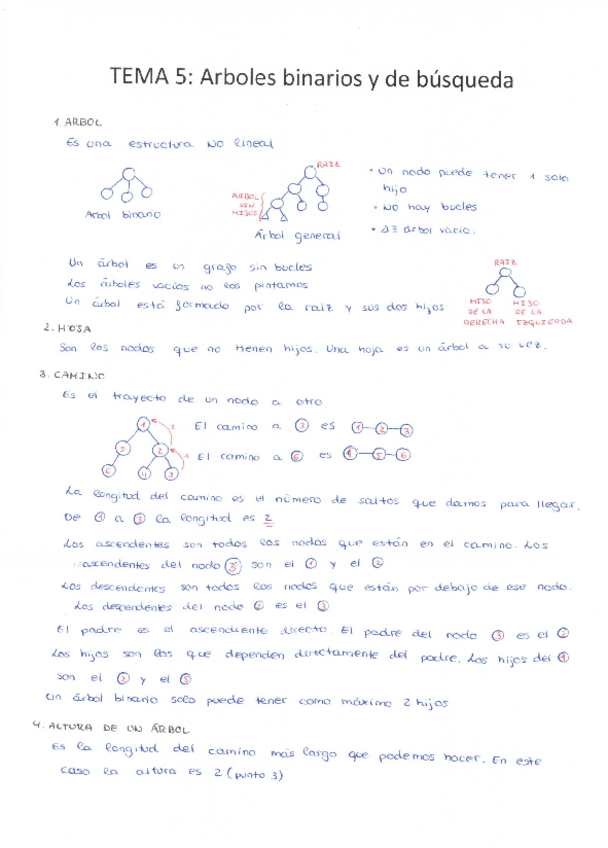 TEMA 5: Arboles binarios y de búsqueda
1. ARBOL
Es una estructura no lineal
RAIZ
ARBOL
SIN
HIJOS
Arbol binario
Árbol general
• Un nodo puede tener 1 solo
hijo
• No hay bucles
• Δ ≡ arbol vacio.
Un árbol es un grafo sin bucles
Los árboles vacíos no los pintamos
Un árbol está formado por la raiz y sus dos hijos
RAIZ
HIJO
DE LA
DERECHA
HIJO
DE LA
IZQUIERDA
2. HOJA
Son los nodos que no tienen hijos. Una hoja es un árbol a su vez.
3. CAMINO
Es el trayecto de un nodo a otro
1
2
5
2
1
6
4
3
El camino a 3 es 1-2-3
El camino a 6 es 1-5-6
La longitud del camino es el número de saltos que damos para llegar.
De 1 a 3 la longitud es 2
Los ascendentes son todos los nodos que están en el camino. Los
ascendentes del nodo 3 son el 1 y el 2
Los descendentes son todos los nodos que están por debajo de ese nodo.
Los descendentes del nodo es el
El padre es el ascendiente directo. El padre del nodo 3 es el 2
Los hijos son los que dependen directamente del padre. Los hijos del 1
son el 2 y el 5
Un árbol binario solo puede tener como máximo 2 hijos
4. ALTURA DE UN ÁRBOL
Es la longitud del camino más largo que podemos hacer. En este
caso la altura es 2 (punto 3)